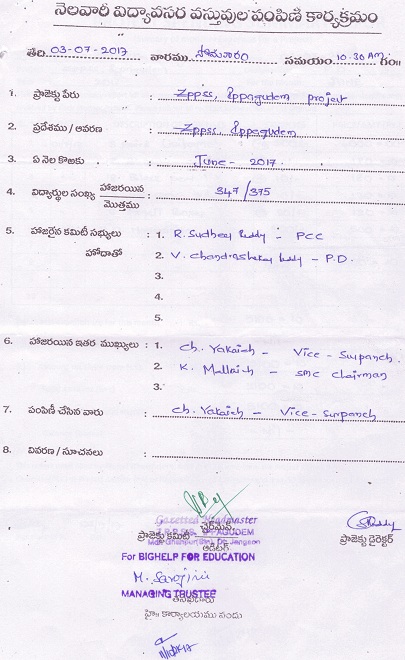 నెలవారీ విద్యావసర వస్తువుల పంపిణి కార్యక్రమం
తేది 03-07-2017 వారము సోమవారం సమయం 10-30 AM గం॥
1. ప్రాజెక్టు పేరు : Zppss, Ippagudem project
2. ప్రదేశము / ఆవరణ : Zppss, Ippagudem
3. ఏ నెల కొఱకు : June - 2017.
4. విద్యార్థుల సంఖ్య హాజరయిన / మొత్తము : 347/375
5. హాజరైన కమిటీ సభ్యులు : 1. R. Sudheer Reddy - PCC
హోదాతో 2. V. Chandrashekar Reddy - P.D.
3.
4.
5.
6. హాజరయిన ఇతర ముఖ్యులు : 1. Ch. Yakaiah - Vice - Surpanch.
2. K. Mallaiah - SMC Chairman
3.
7. పంపిణీ చేసిన వారు : Ch. Yakaiah - Vice - Surpanch
8. వివరణ / సూచనలు :
Gazetted Headmaster
ప్రాజెక్టు కమిటీ ఛైర్మెన్ ప్రాజెక్టు డైరెక్టర్
Z.P.S.S. IPPAGUDEM
ఆడిటర్
For BIGHELP FOR EDUCATION
M. Sarojini
MANAGING TRUSTEE